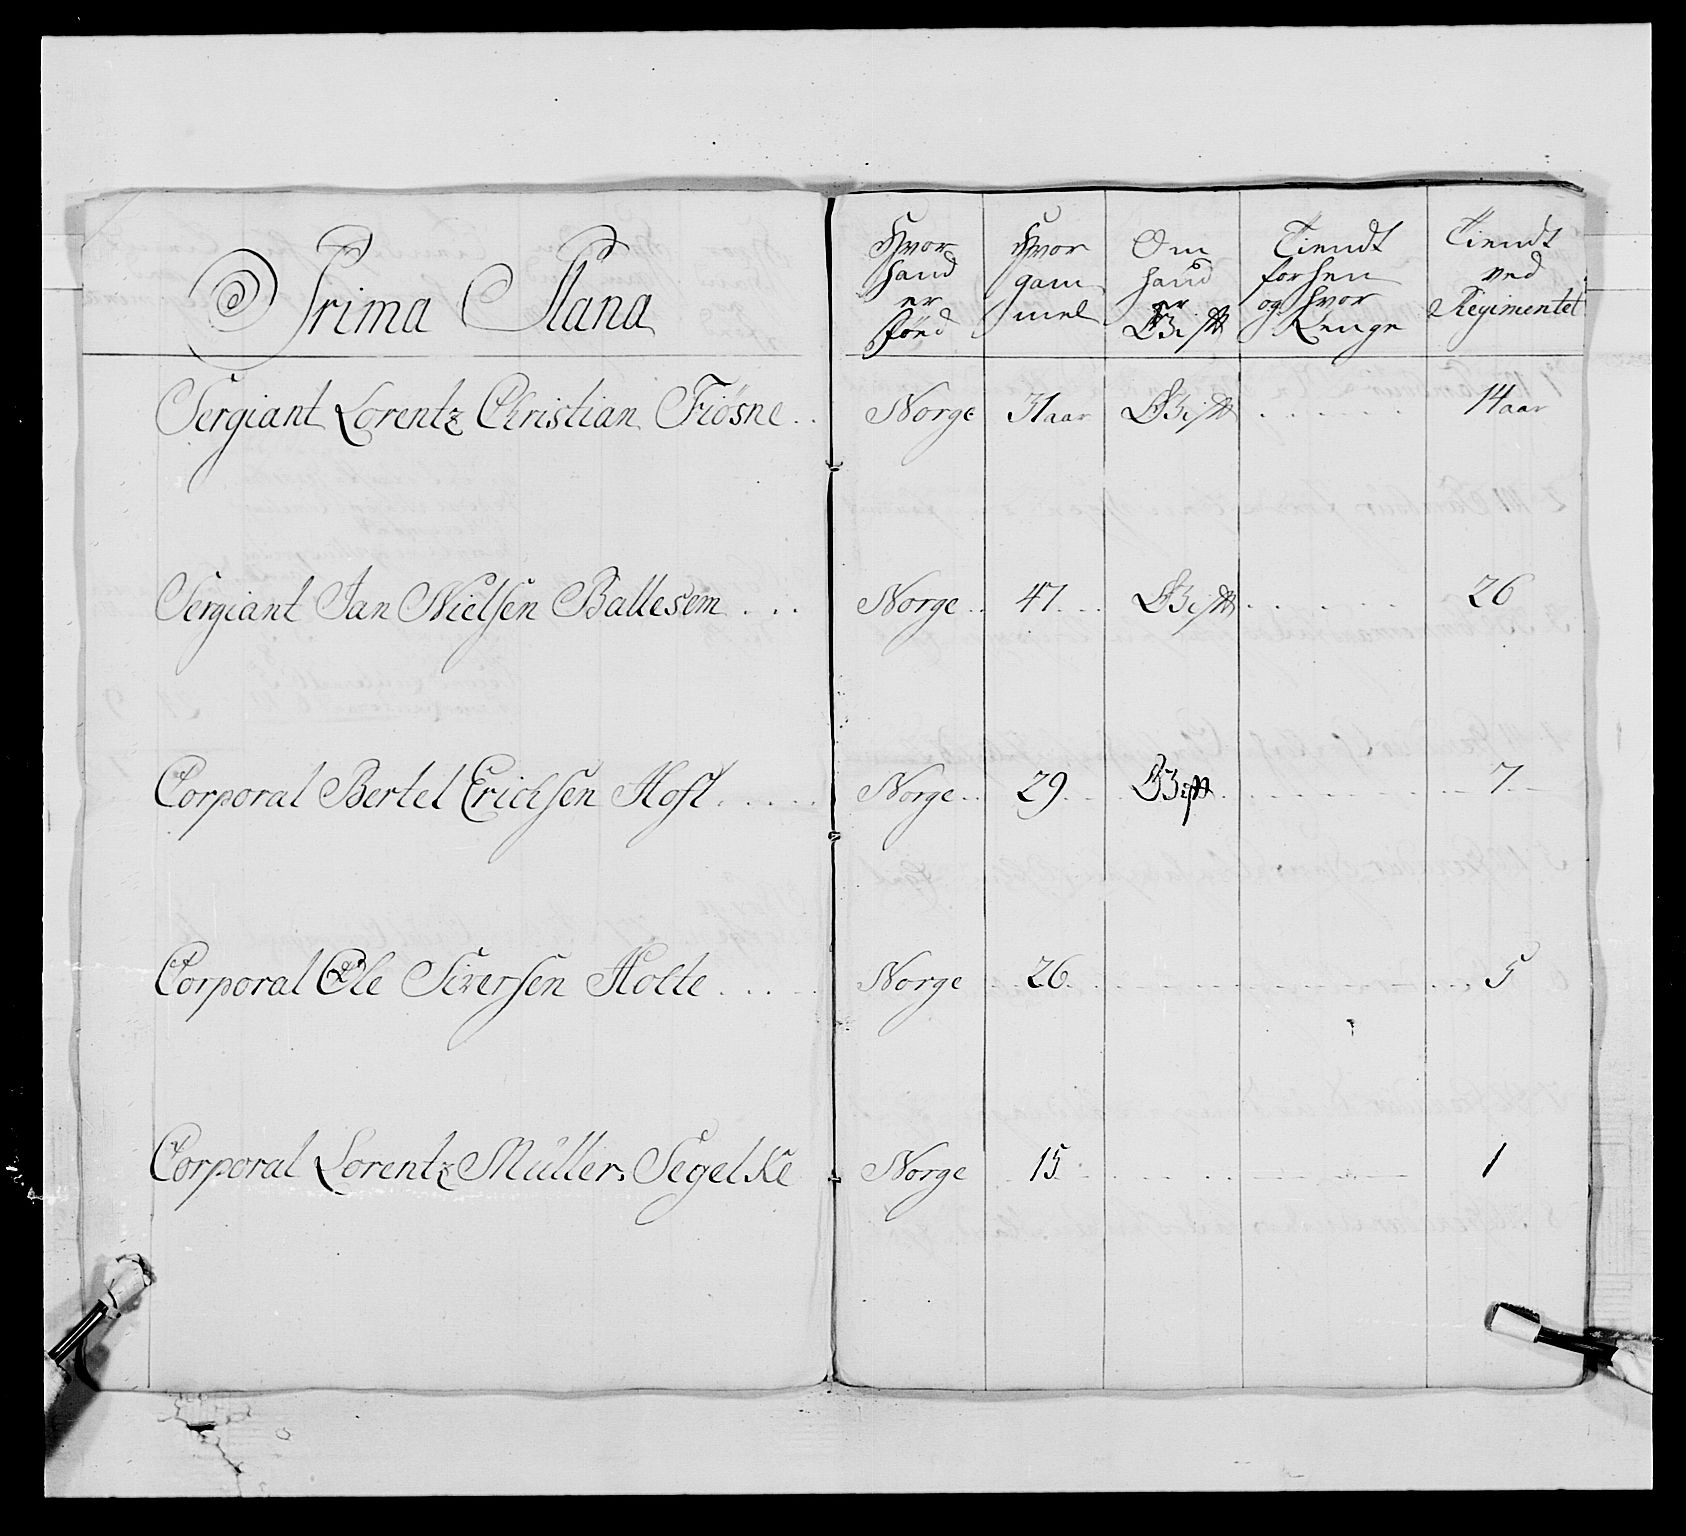 Prima Plana
Hvor hand er fød
Hvor gam mel
Om hand er Gift
Tiendt forhen og hvor Lenge
Tiendt ved Regimentet
Sergiant Lorentz Christian Fiösne . . Norge 31 aar Gift . . . . . . 14 aar
Sergiant Jan Nielsen Ballesem . . . Norge . . 47 . . . Gift . . . . . . 26
Corporal Bertel Erichsen Hoft . . . . . Norge . . 29 . . . Gift . . . . . . 7
Corporal Ole Siversen Holte . . . . Norge . . 26 . . . . . . 5
Corporal Lorentz Müller Segelke Norge 15 . . . . . . 1